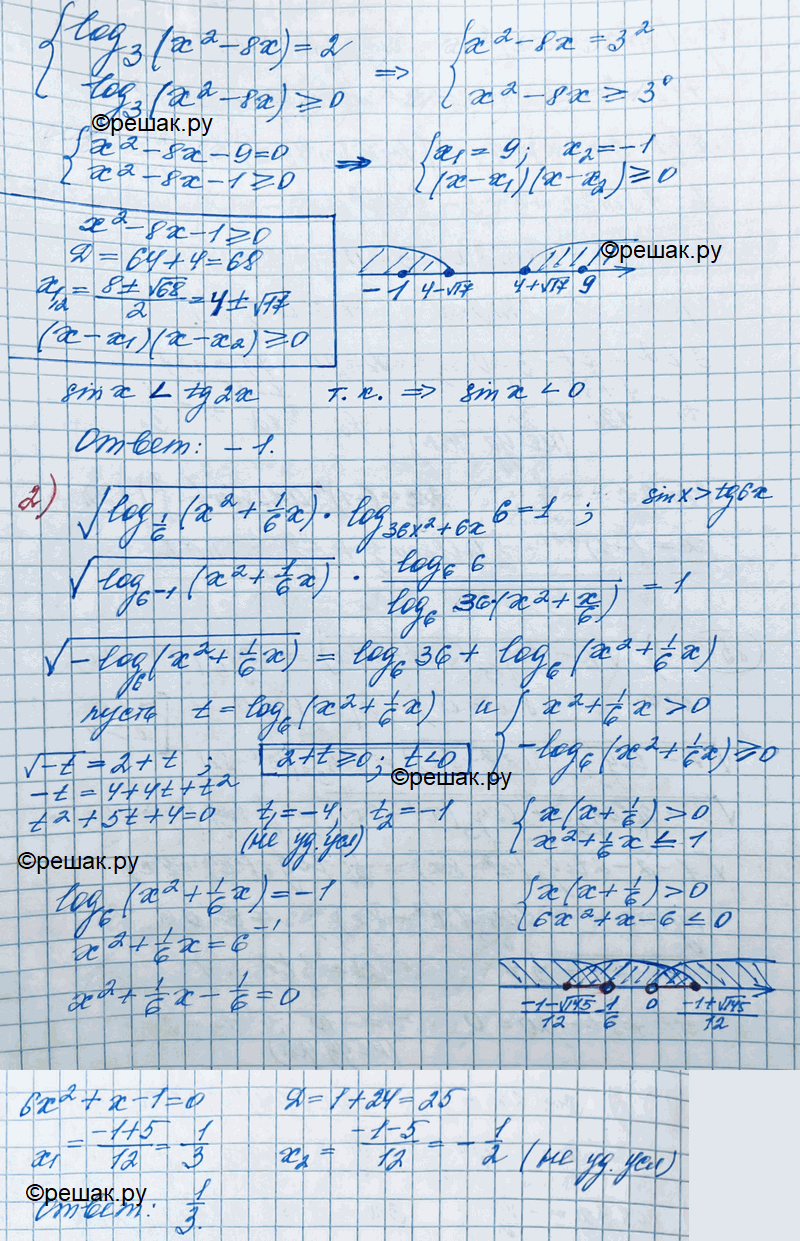 { log₃(x²-8x)=2 => { x²-8x=3²
log₃(x²-8x)≥0 x²-8x≥3⁰
©решак.ру
{ x²-8x-9=0 => { x₁=9; x₂=-1
x²-8x-1≥0 (x-x₁)(x-x₂)≥0
x²-8x-1≥0
D=64+4=68
x₁,₂ = (8±√68)/2 = 4±√17
(x-x₁)(x-x₂)≥0
©решак.ру
-1 4-√17 4+√17 9
sin x < tg 2x т.к. => sin x < 0
Ответ: -1.
2) √(log_{1/6}(x²+1/6x)) · log_{36x²+6x} 6=1 ; sin x > tg 6x
√(log_{6⁻¹}(x²+1/6x)) · (log₆ 6)/(log₆ 36·(x²+x/6)) = 1
√(-log₆(x²+1/6x)) = log₆ 36 + log₆ (x²+1/6x)
пусть t = log₆(x²+1/6x) и { x²+1/6x > 0
-log₆(x²+1/6x) ≥ 0
√-t = 2+t ; 2+t≥0; t<0
©решак.ру
-t = 4+4t+t²
t²+5t+4=0 t₁=-4; t₂=-1
(не уд. усл)
{ x(x+1/6)>0
x²+1/6x ≤ 1
©решак.ру
log₆(x²+1/6x)=-1
{ x(x+1/6)>0
6x²+x-6≤0
x²+1/6x=6⁻¹
x²+1/6x-1/6=0
(-1-√145)/12 -1/6 0 (-1+√145)/12
©решак.ру
6x²+x-1=0 D=1+24=25
x₁ = (-1+5)/12 = 1/3 x₂ = (-1-5)/12 = -1/2 (не уд. усл)
©решак.ру
Ответ: 1/3.